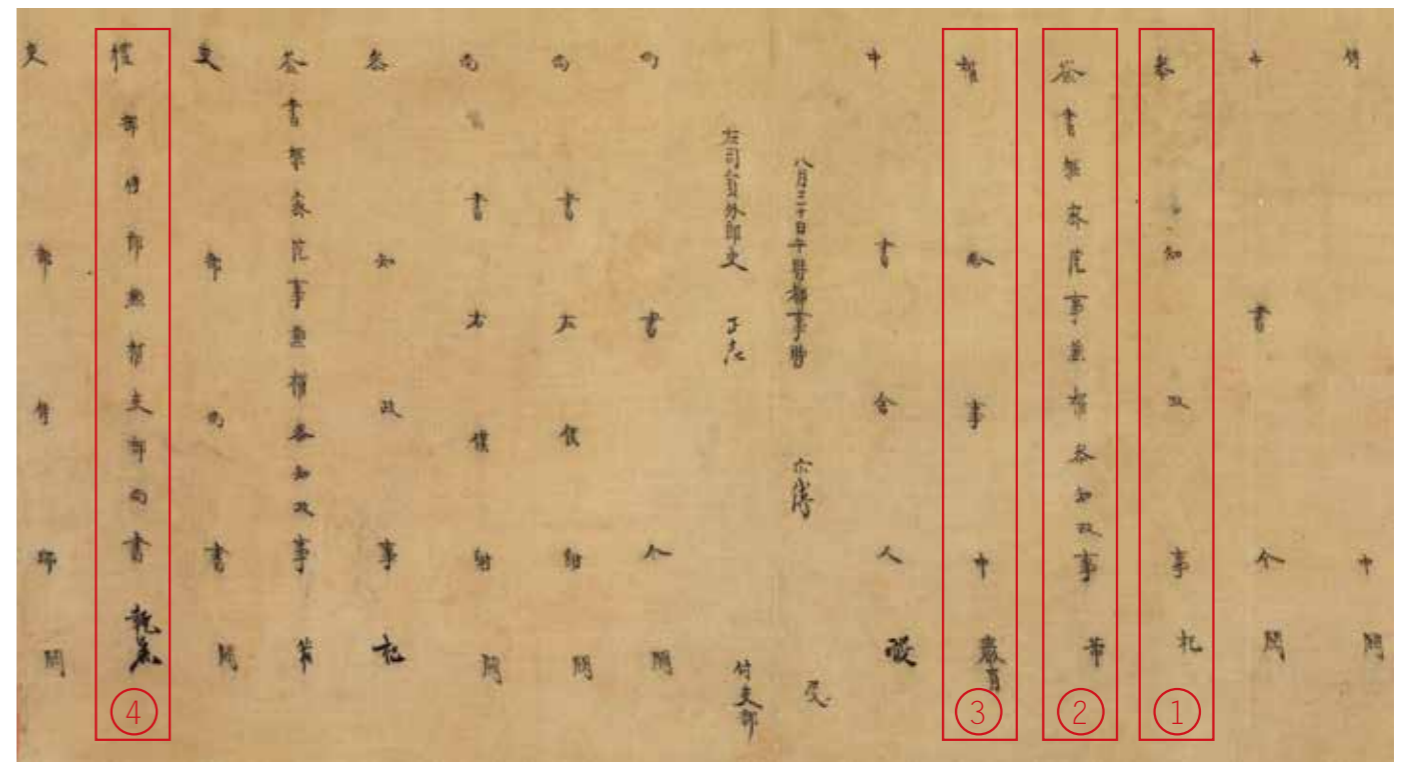 侍中闕
中書令闕
參知政事杞
①
簽書樞密院事兼權參知政事芾
②
權給事中
③
中書舍人
八月三十日午時都事 受
左司員外郎史正志 付吏部
尚書令闕
尚書左僕射闕
尚書右僕射闕
參知政事杞
簽書樞密院事兼權參知政事芾
吏部尚書闕
禮部侍郎兼權吏部尚書執羔
④
吏部侍郎闕